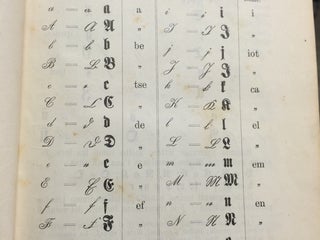 a — a a a i — i i i
A — A A „ I — I I „
b — b b be j — j j iot
B — B B „ J — J J „
c — c c tse k — k k ca
C — C C „ K — K K „
d — d d de l — l l el
D — D D „ L — L L „
e — e e e m — m m em
E — E E „ M — M M „
f — f f ef n — n n en
F — F F „ N — N N „